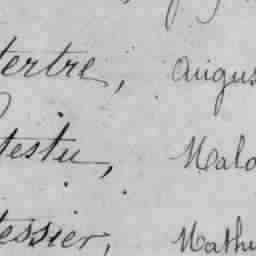 tertre, Augus
testu, Malo
tessier, Mathu